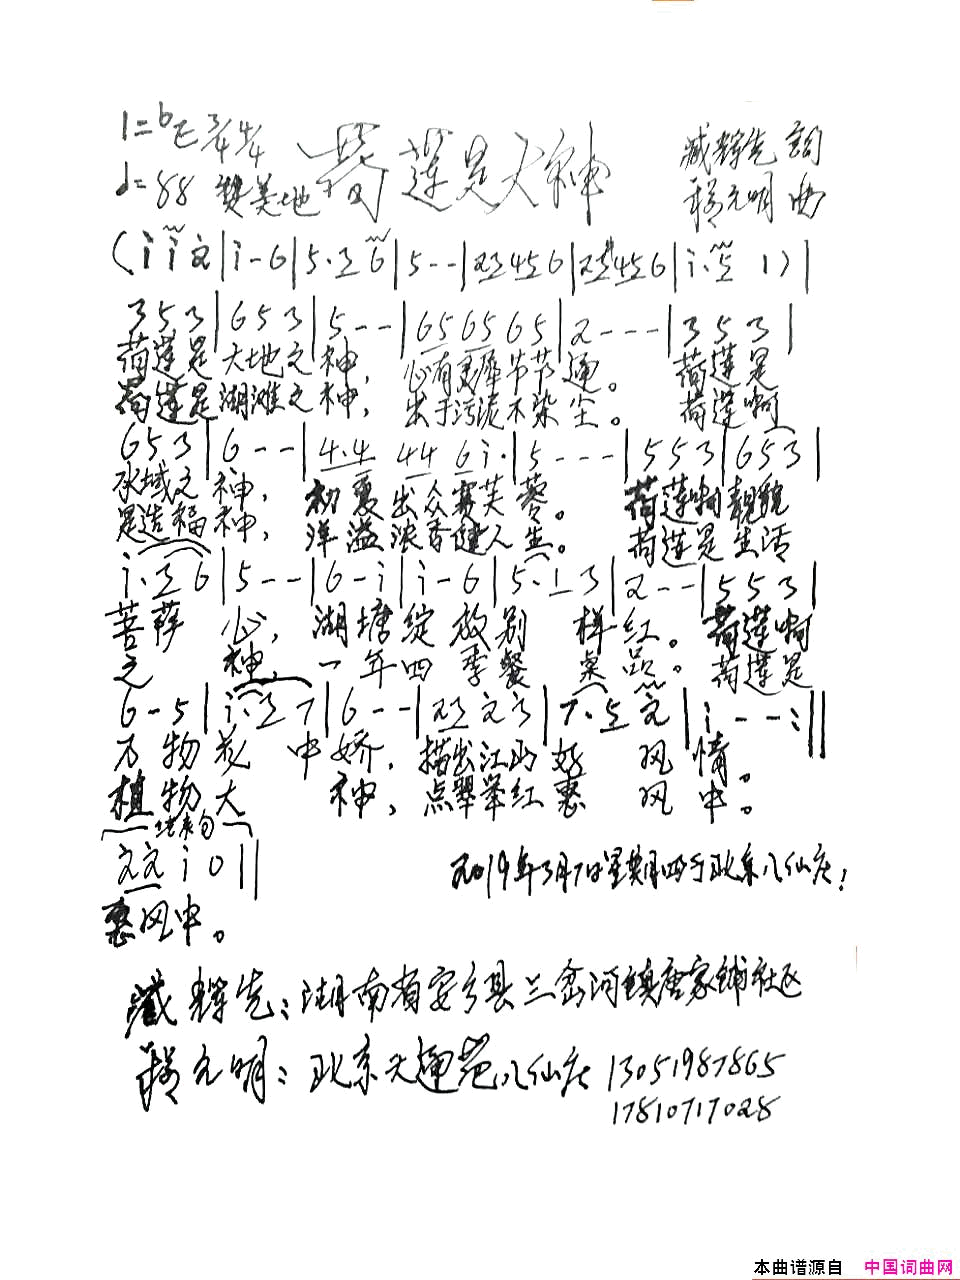 1=bE 3/4 4/4
荷莲是大神
臧辉先 詞
♩=88 赞美地
程元明 曲
(i i 2|i-6|5·36|5--|23456|25456|i·5 1)|
353|653|5--|656565|2---|353|
荷莲是大地之神，心有灵犀节节通。荷莲是
荷莲是湖滩之神，出于污泥不染尘。荷莲啊
653|6--|4·4 44 6i·|5---|553|653|
水域之神，初夏出众赛芙蓉。荷莲啊靓貌
是造福神，洋溢浓香健人生。荷莲是生活
i·36|5--|6-i|i-6|5·13|2--|553|
菩萨心，湖塘绽放别样红。荷莲啊
之神，一年四季餐桌品。荷莲是
6-5|i·27|6--|2323|7·52|i--:||
万物花中娇，描出江山好风情。
植物大神，点翠荤红惠风中。
结束句
22i0||
2019年3月7日星期四于北京八仙庄！
惠风中。
臧辉先：湖南省安乡县三岔河镇唐家铺社区
程元明：北京天通苑八仙庄 13051987865
17810717028
本曲谱源自 中国词曲网